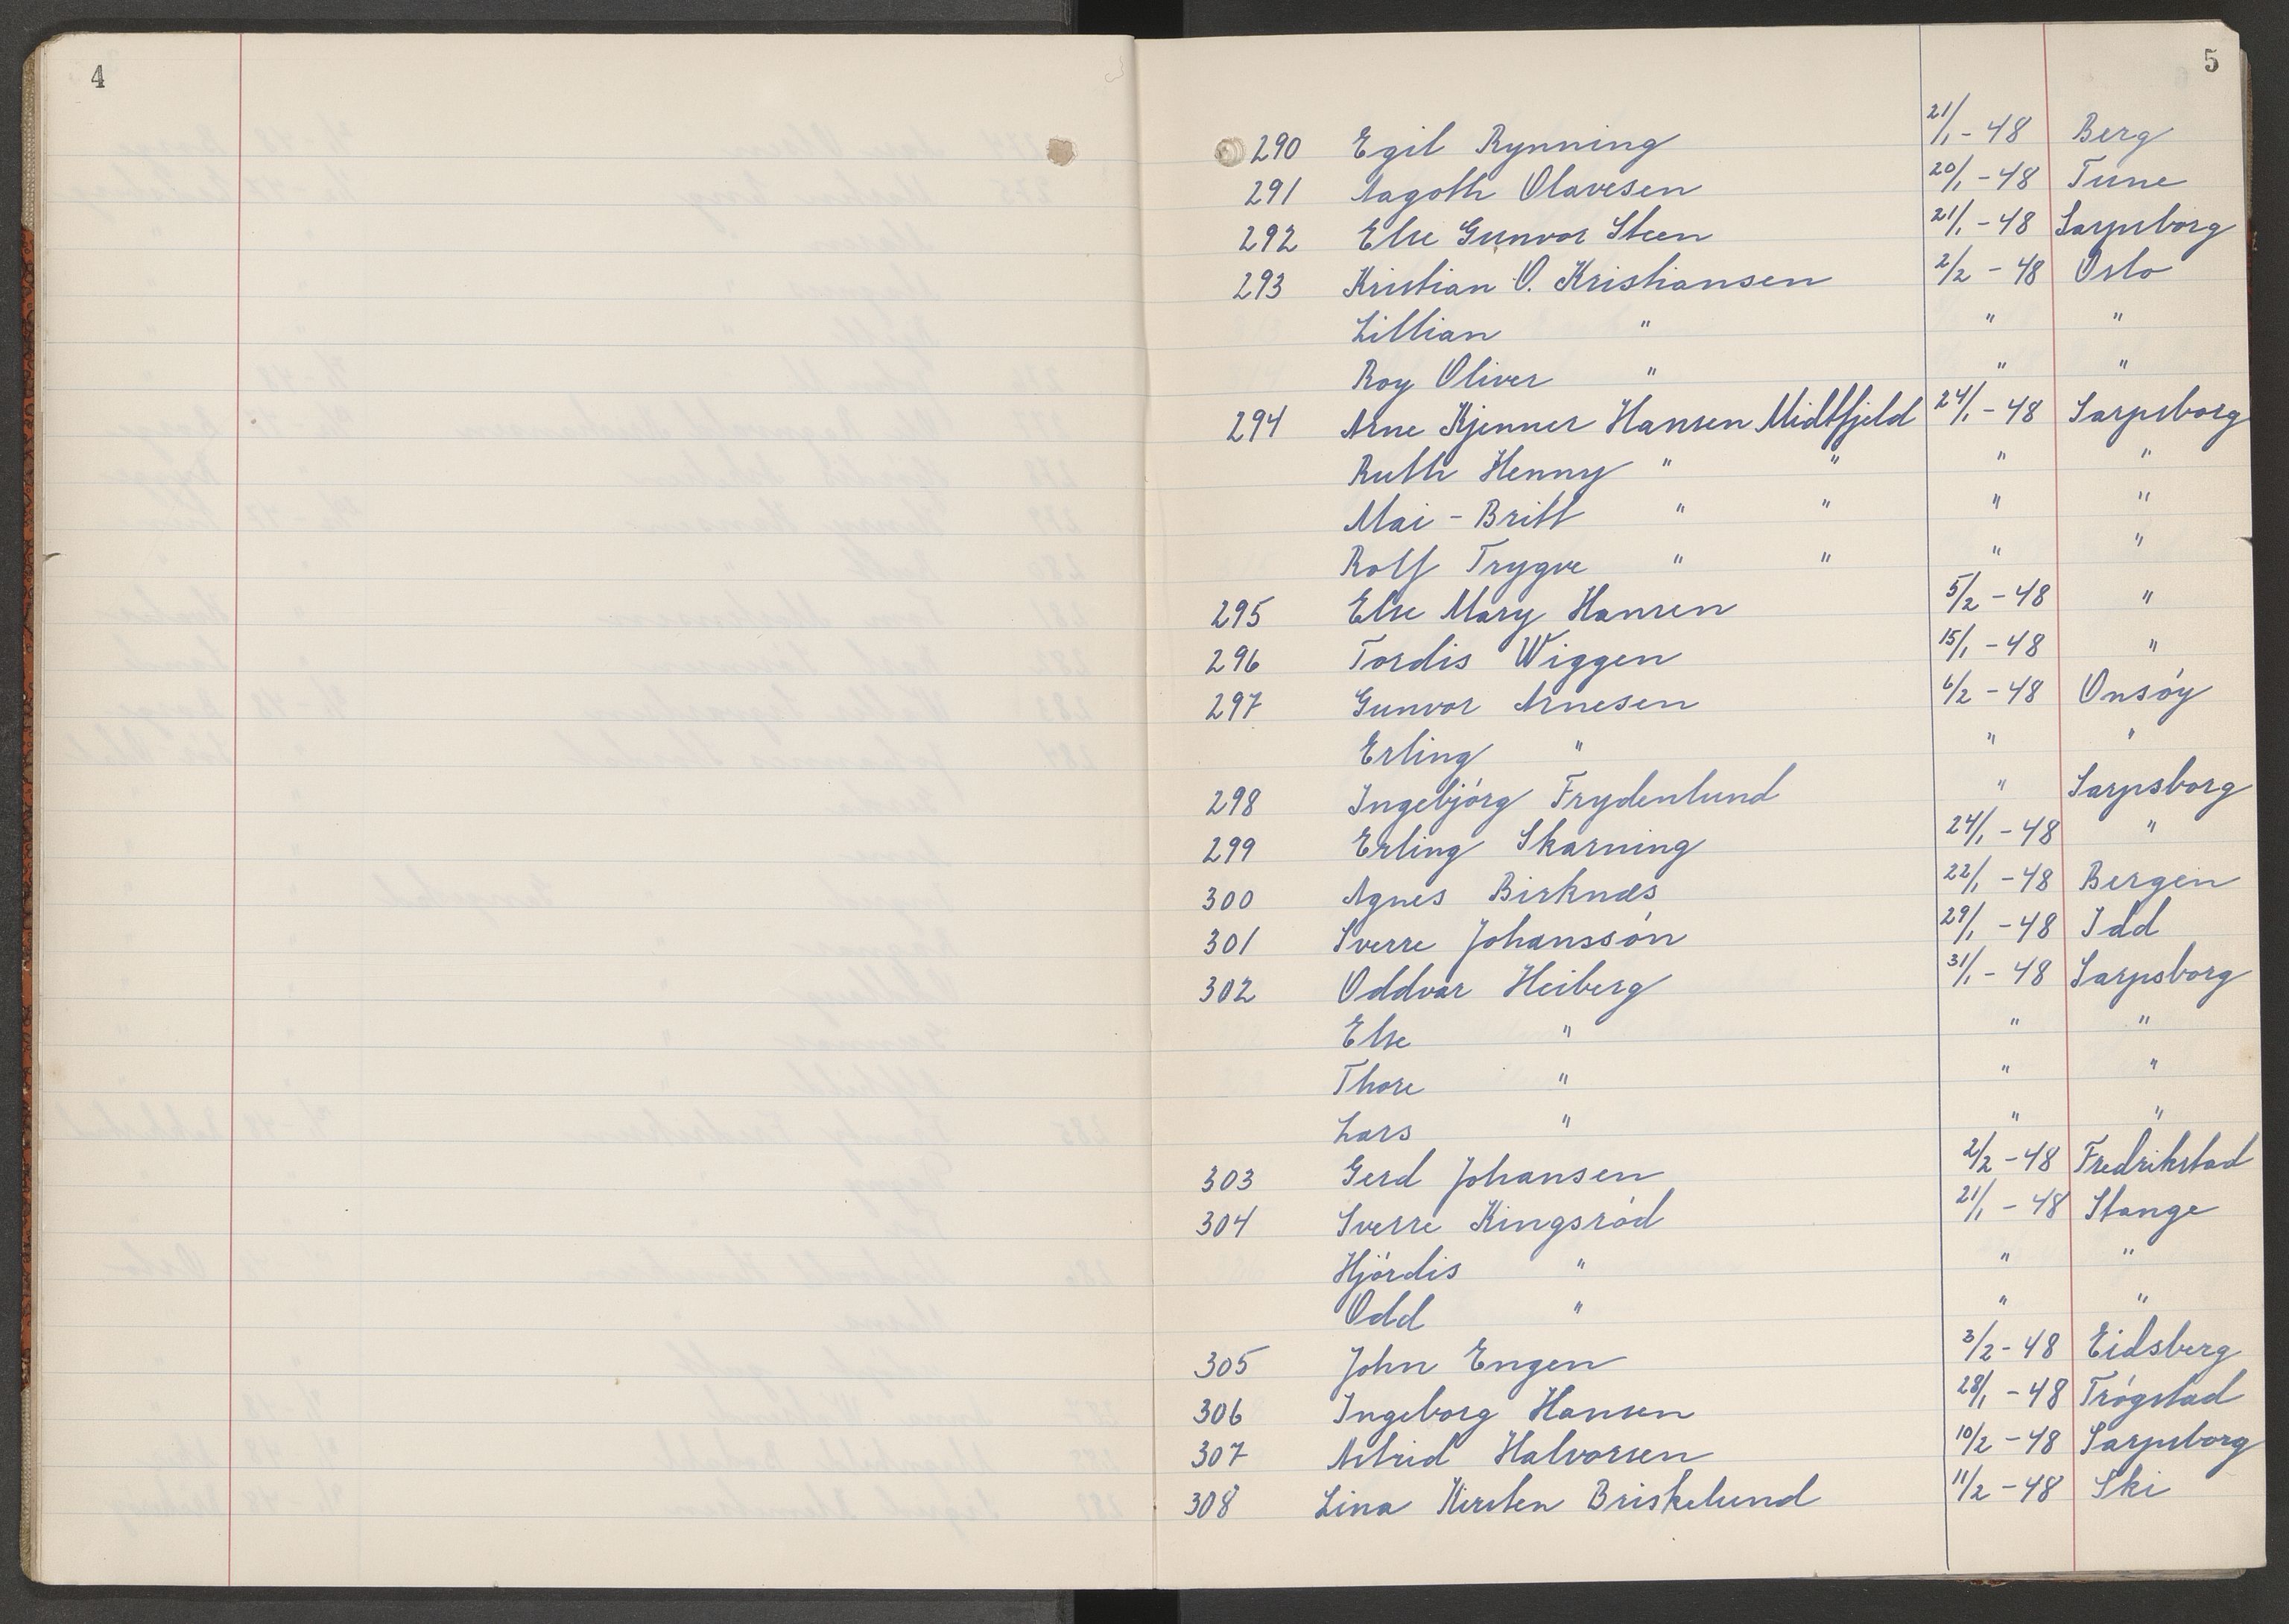 4
5
290 Egil Rynning 21/1 - 48 Berg
291 Aagoth Olavesen 20/1 - 48 Tune
292 Else Gunvor Steen 21/1 - 48 Sarpsborg
293 Kristian O. Kristiansen 2/2 - 48 Oslo
Lillian " " "
Roy Oliver " " "
294 Arne Kjenner Hansen Midtfjeld 24/1 - 48 Sarpsborg
Ruth Henny " " " "
Mai - Britt " " " "
Rolf Trygve " " " "
295 Else Mary Hansen 5/2 - 48 "
296 Tordis Wiggen 15/1 - 48 "
297 Gunvor Arnesen 6/2 - 48 Onsóy
Erling " " "
298 Ingebjórg Frydenlund " Sarpsborg
299 Erling Skarning 24/1 - 48 "
300 Agnes Birknæs 22/1 - 48 Bergen
301 Sverre Johanssón 29/1 - 48 Idd
302 Oddvar Heiberg 31/1 - 48 Sarpsborg
Else " " "
Thore " " "
Lars " " "
303 Gerd Johansen 2/2 - 48 Fredrikstad
304 Sverre Kingsród 21/1 - 48 Stange
Hjórdis " " "
Odd " " "
305 John Engen 3/2 - 48 Eidsberg
306 Ingeborg Hansen 28/1 - 48 Trógstad
307 Astrid Halvorsen 10/2 - 48 Sarpsborg
308 Lina Kirsten Briskelund 11/2 - 48 Ski